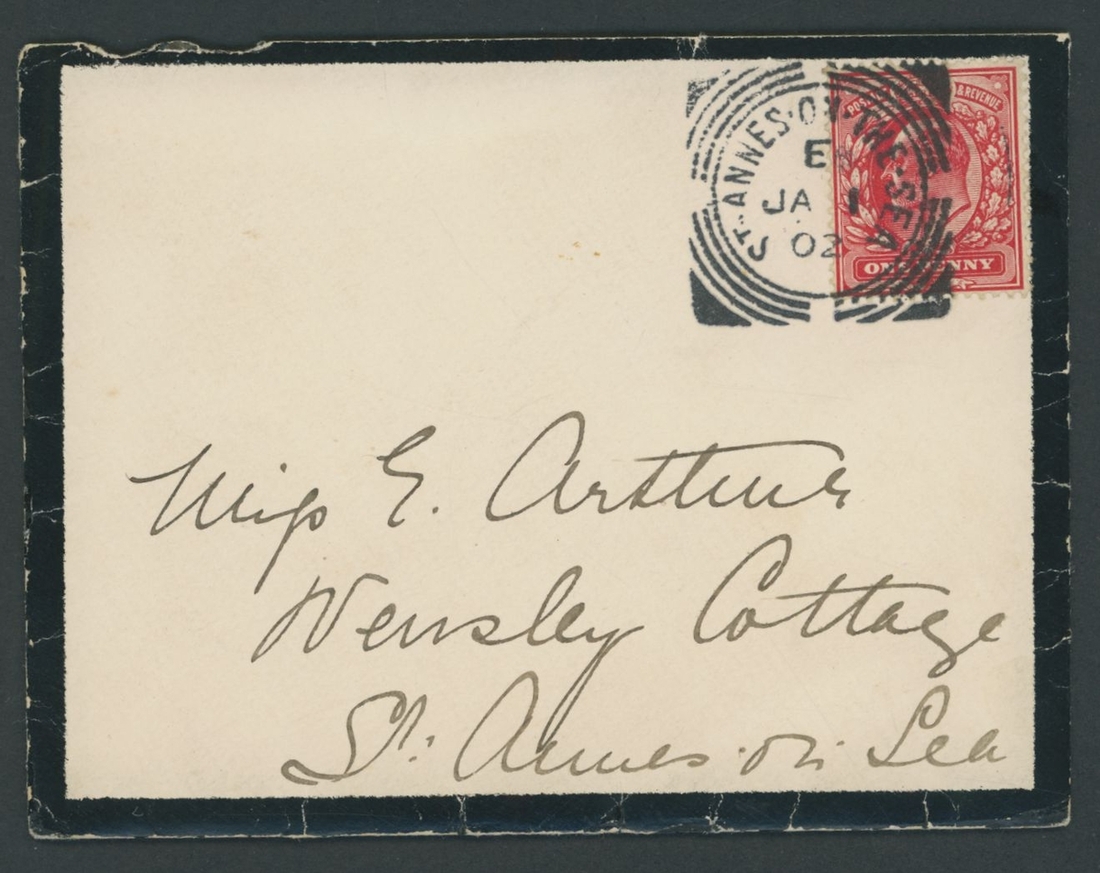 POSTAGE & REVENUE
ST. ANNES-ON-THE-SEA
JA 1
02
ONE PENNY
Miss E. Arthur
Wensley Cottage
St. Annes-on-Sea